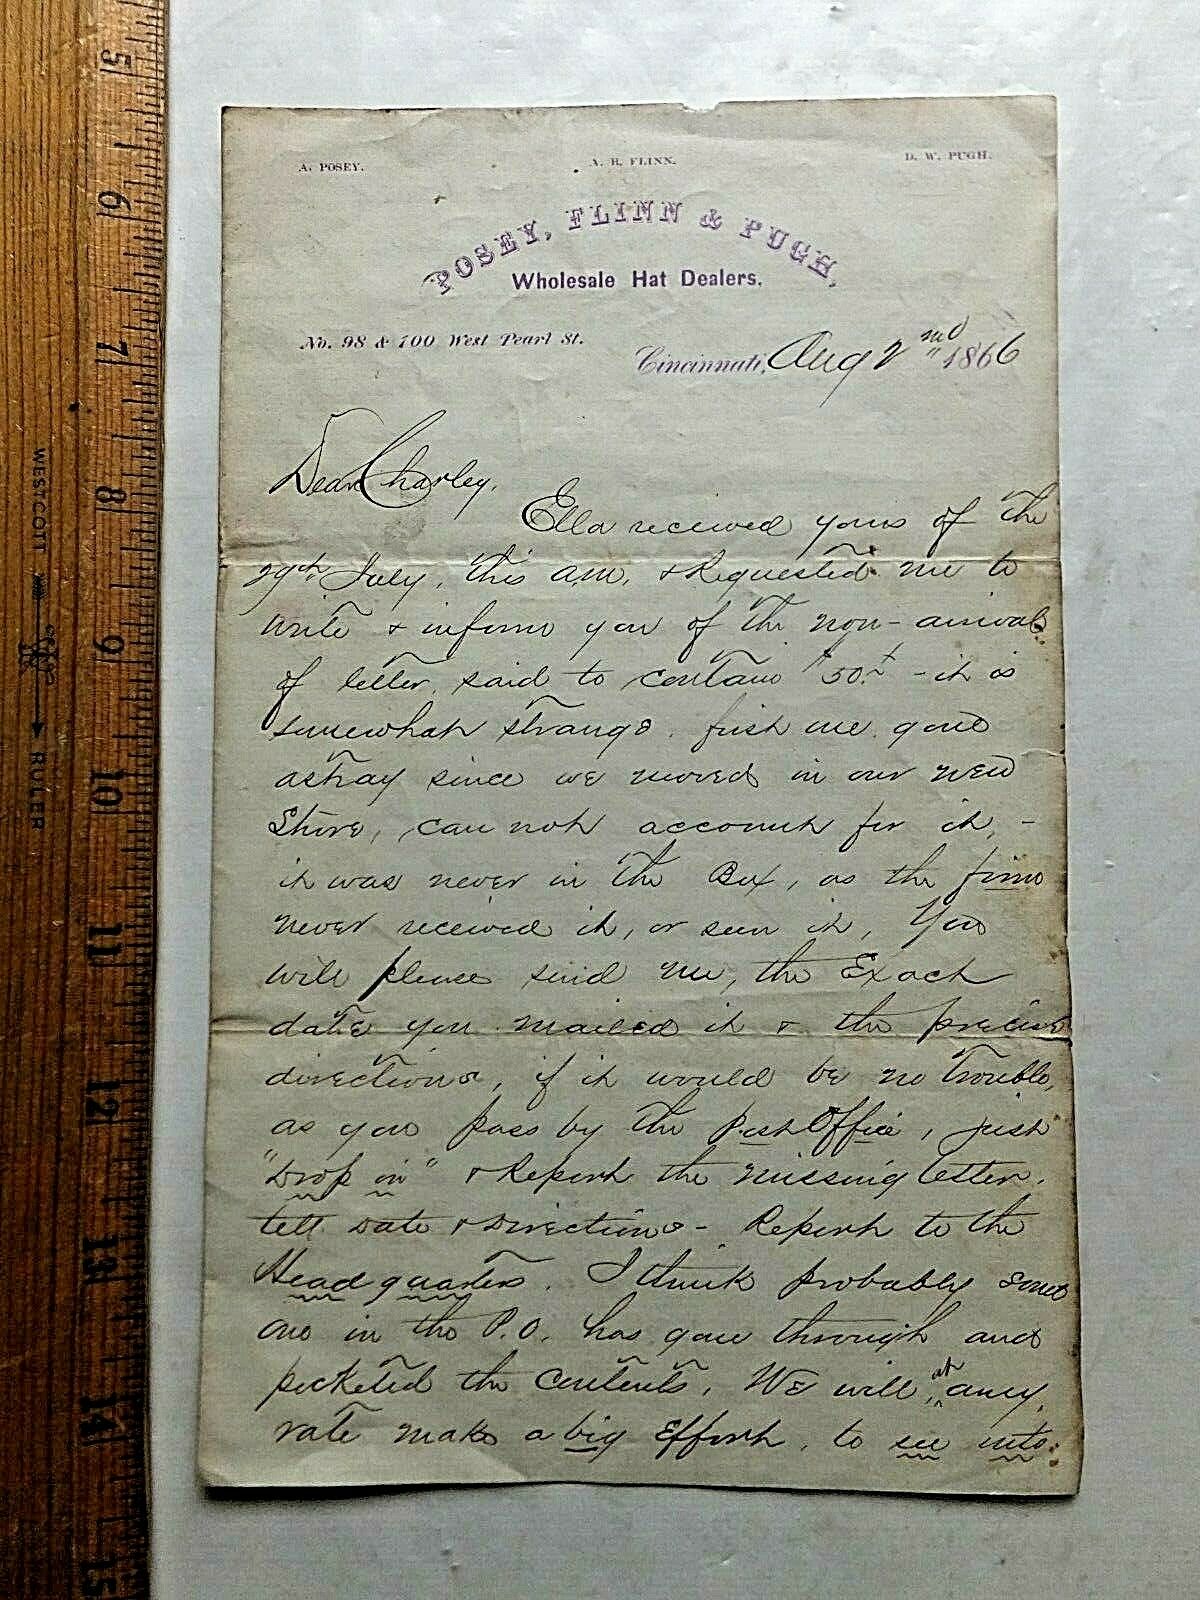 A. POSEY. A. R. FLINN. D. W. PUGH.
POSEY, FLINN & PUGH,
Wholesale Hat Dealers.
No. 98 & 100 West Pearl St.
Cincinnati, Aug 2nd 1866
Dear Charley,
Ella received yours of the
29th July, this am, & Requested me to
write & inform you of the non-arrival
of letter, said to contain $50. - it is
somewhat strange, first one gone
astray since we moved in our new
Store, can not account for it, -
it was never in the Box, as the firm
never received it, or seen it, You
will please send me, the Exact
date you mailed it & the precise
directions, if it would be no trouble,
as you pass by the Post Office, just
"Drop in" & Report the missing letter.
tell Date & Directions - Report to the
Headquarters. I think probably some
one in the P.O. has gone through and
pocketed the contents. We will, at any,
rate make a big Effort, to see into:
WESTCOTT RULER
5
6
7
8
9
10
11
12
13
14
15